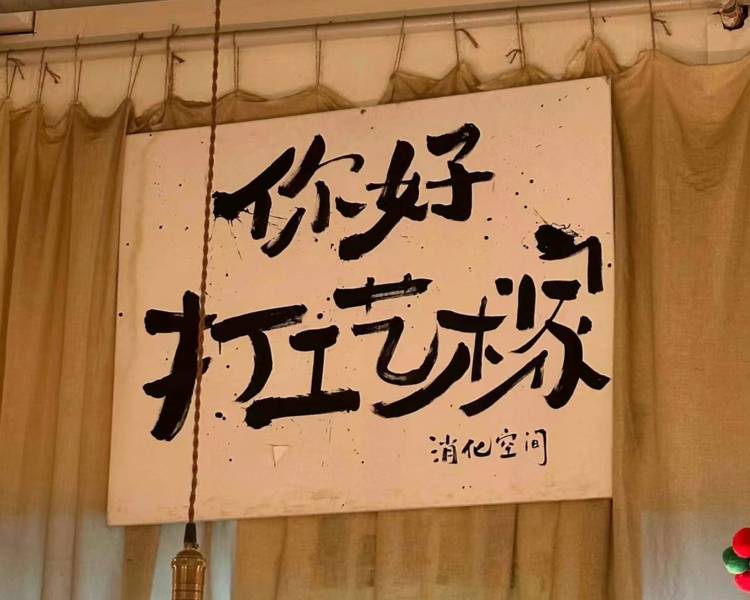 你好
打工艺术家
消化空间